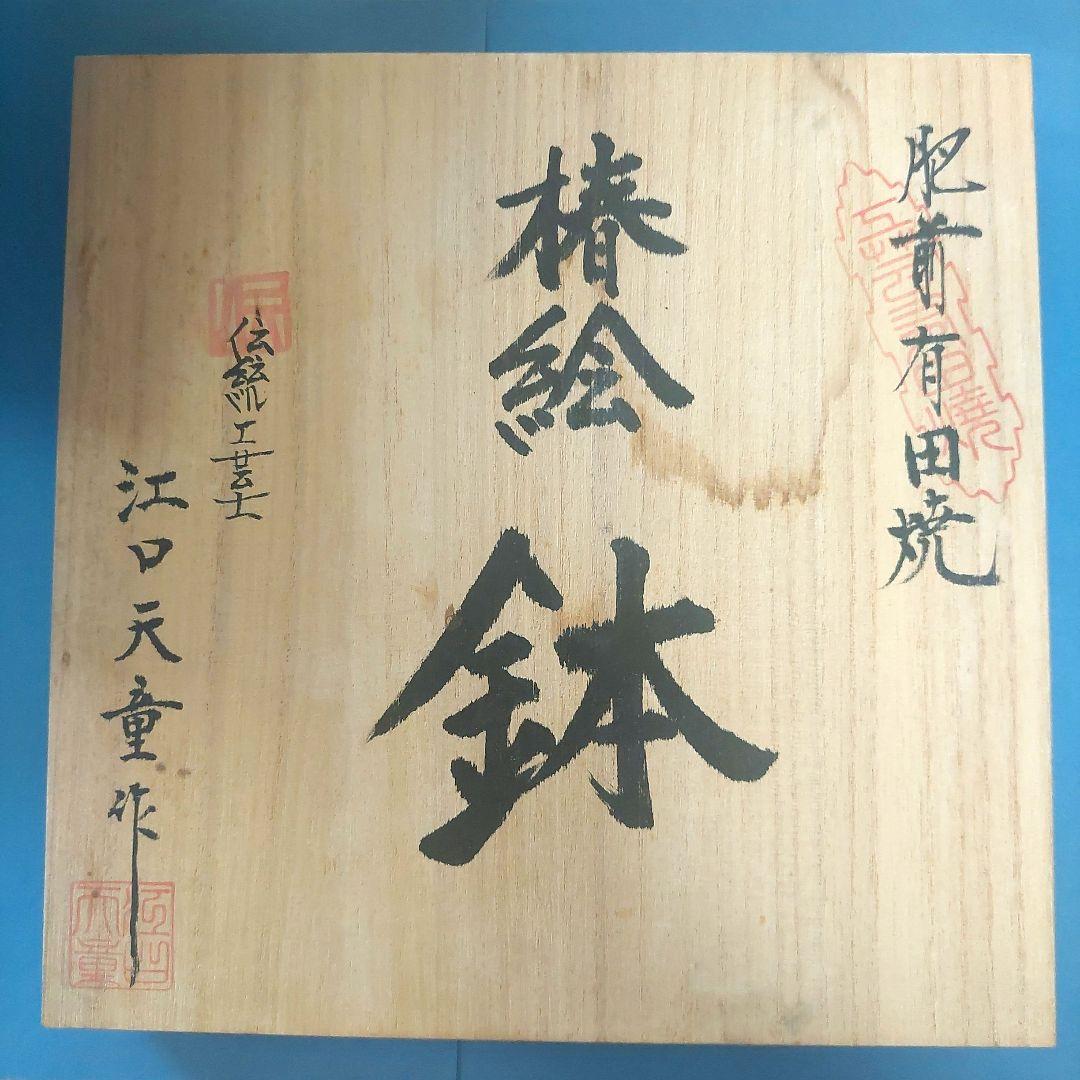 肥前有田焼
椿絵
鉢
伝統工芸士
江口天童作
江口天童